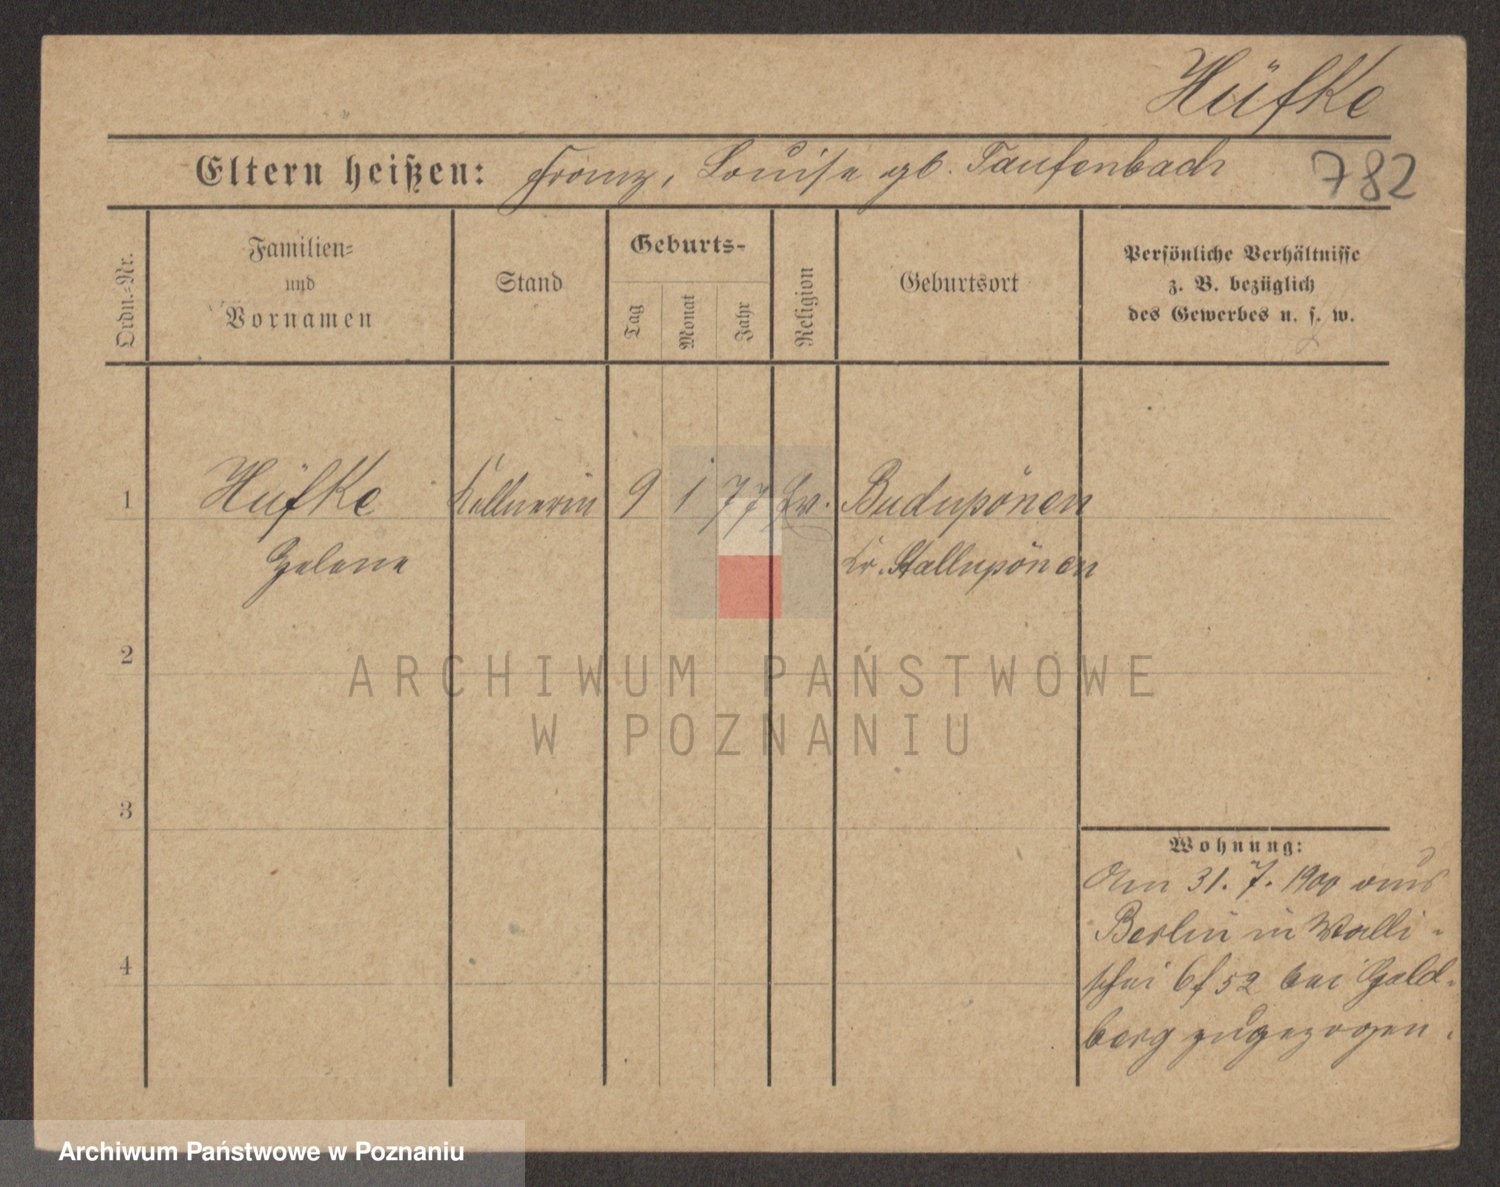 Hüfke
Eltern heißen: Franz, Louise gb. Taufenbach
782
Ordn.-Nr.
Familien-
und
Vornamen
Stand
Geburts-
Tag
Monat
Jahr
Religion
Geburtsort
Persönliche Verhältnisse
z. B. bezüglich
des Gewerbes u. s. w.
1 Hüfke Kellnerin 9 1 77 Ev. Budupönen
Helene Kr. Stallupönen
2
3
4
Wohnung:
Am 31. 7. 1900 aus
Berlin in Walli-
schei 6/52 bei Gold-
berg zugezogen.
ARCHIWUM PAŃSTWOWE
W POZNANIU
Archiwum Państwowe w Poznaniu